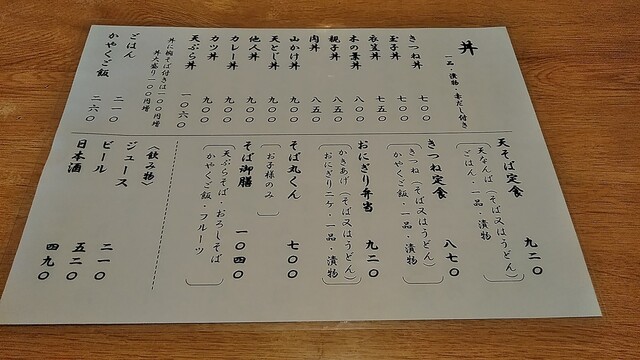 丼
一品・漬物・赤だし付き
きつね丼 七〇〇
玉子丼 七〇〇
衣笠丼 七五〇
木の葉丼 八〇〇
親子丼 八五〇
肉丼 八五〇
山かけ丼 九〇〇
天とじ丼 九〇〇
他人丼 九〇〇
カレー丼 九〇〇
カツ丼 九〇〇
天ぷら丼 一〇六〇
丼に椀そば付きは一〇〇円増
丼大盛り一〇〇円増
ごはん 二一〇
かやくご飯 二六〇
天そば定食 九二〇
天なんば(そば又はうどん)
ごはん・一品・漬物
きつね定食 八七〇
きつね(そば又はうどん)
かやくご飯・一品・漬物
おにぎり弁当 九二〇
かきあげ(そば又はうどん)
おにぎり二ケ・一品・漬物
そば丸くん 七〇〇
お子様のみ
そば御膳 一〇四〇
天ぷらそば・おろしそば
かやくご飯・フルーツ
〈飲み物〉
ジュース 二一〇
ビール 五二〇
日本酒 四九〇